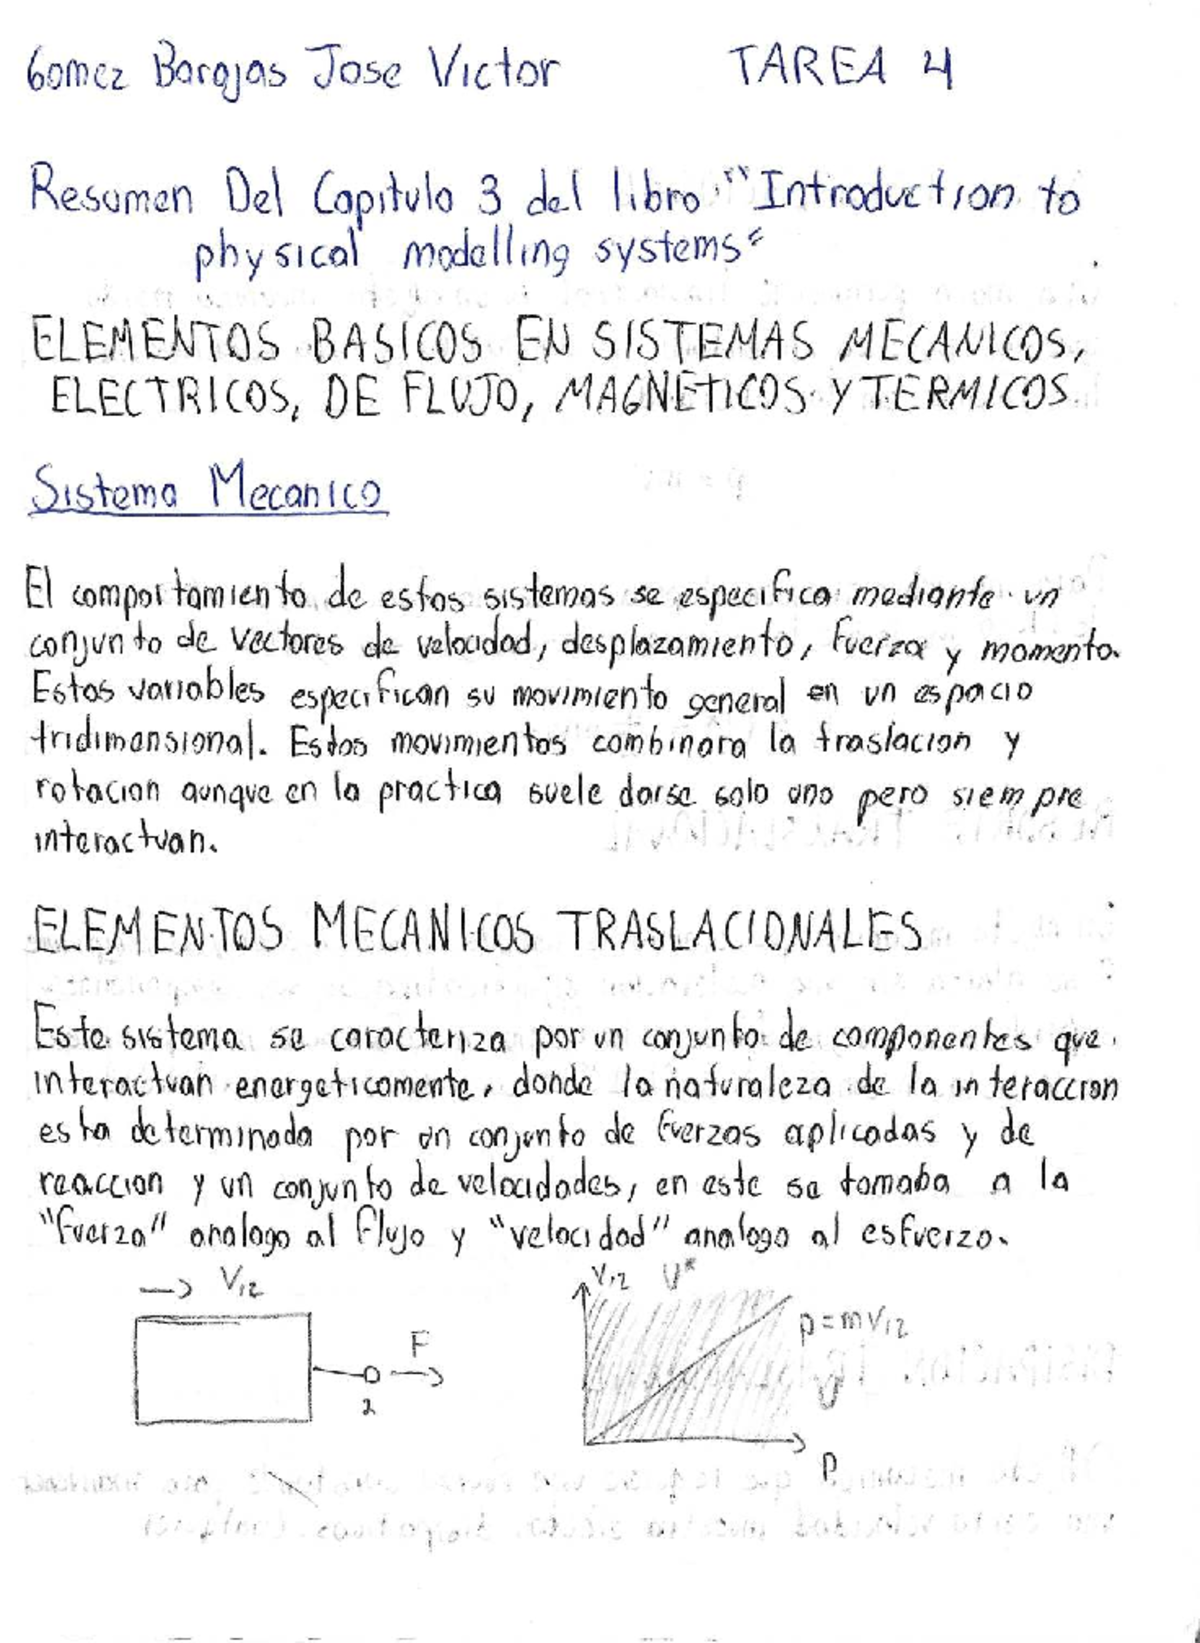 Gomez Barajas Jose Victor TAREA 4
Resumen Del Capitulo 3 del libro "Introduction to
physical modelling systems"
ELEMENTOS BASICOS EN SISTEMAS MECANICOS,
ELECTRICOS, DE FLUJO, MAGNETICOS Y TERMICOS
Sistema Mecanico
El comportamiento de estos sistemas se especifica mediante un
conjunto de vectores de velocidad, desplazamiento, fuerza y momento.
Estos variables especifican su movimiento general en un espacio
tridimensional. Estos movimientos combinara la traslacion y
rotacion aunque en la practica suele darse solo uno pero siempre
interactuan.
ELEMENTOS MECANICOS TRASLACIONALES
Este sistema se caracteriza por un conjunto de componentes que
interactuan energeticamente, donde la naturaleza de la interaccion
esta determinada por un conjunto de fuerzas aplicadas y de
reaccion y un conjunto de velocidades, en este se tomaba a la
"fuerza" analogo al flujo y "velocidad" analogo al esfuerzo.
V12
F
2
V12 U*
p=mV12
U
p